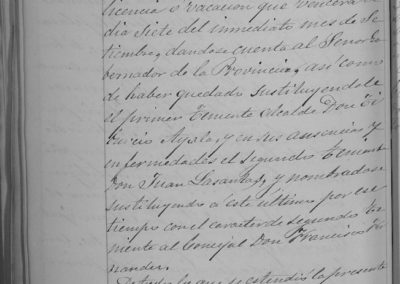 licencia o vacacion que vencera el
dia siete del inmediato mes de Se-
tiembre, dandose cuenta al Señor Go
bernador de la Provincia, asi como
de haber quedado sustituyendole
el primer Teniente Alcalde Don Ti
burcio Ayala, y en sus ausencias y
enfermedades el segundo Teniente
Don Juan Lasanta, y nombradose
sustituyendo a este ultimo por ese
tiempo con el caracter de segundo Te
niente al Concejal Don Francisco Fer
nandez.
De todo lo que se estendió la presente